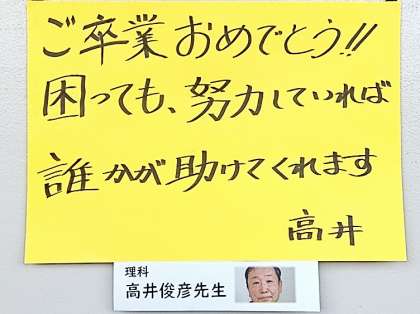 ご卒業おめでとう!!
困っても、努力していれば
誰かが助けてくれます
高井
理科
高井俊彦先生